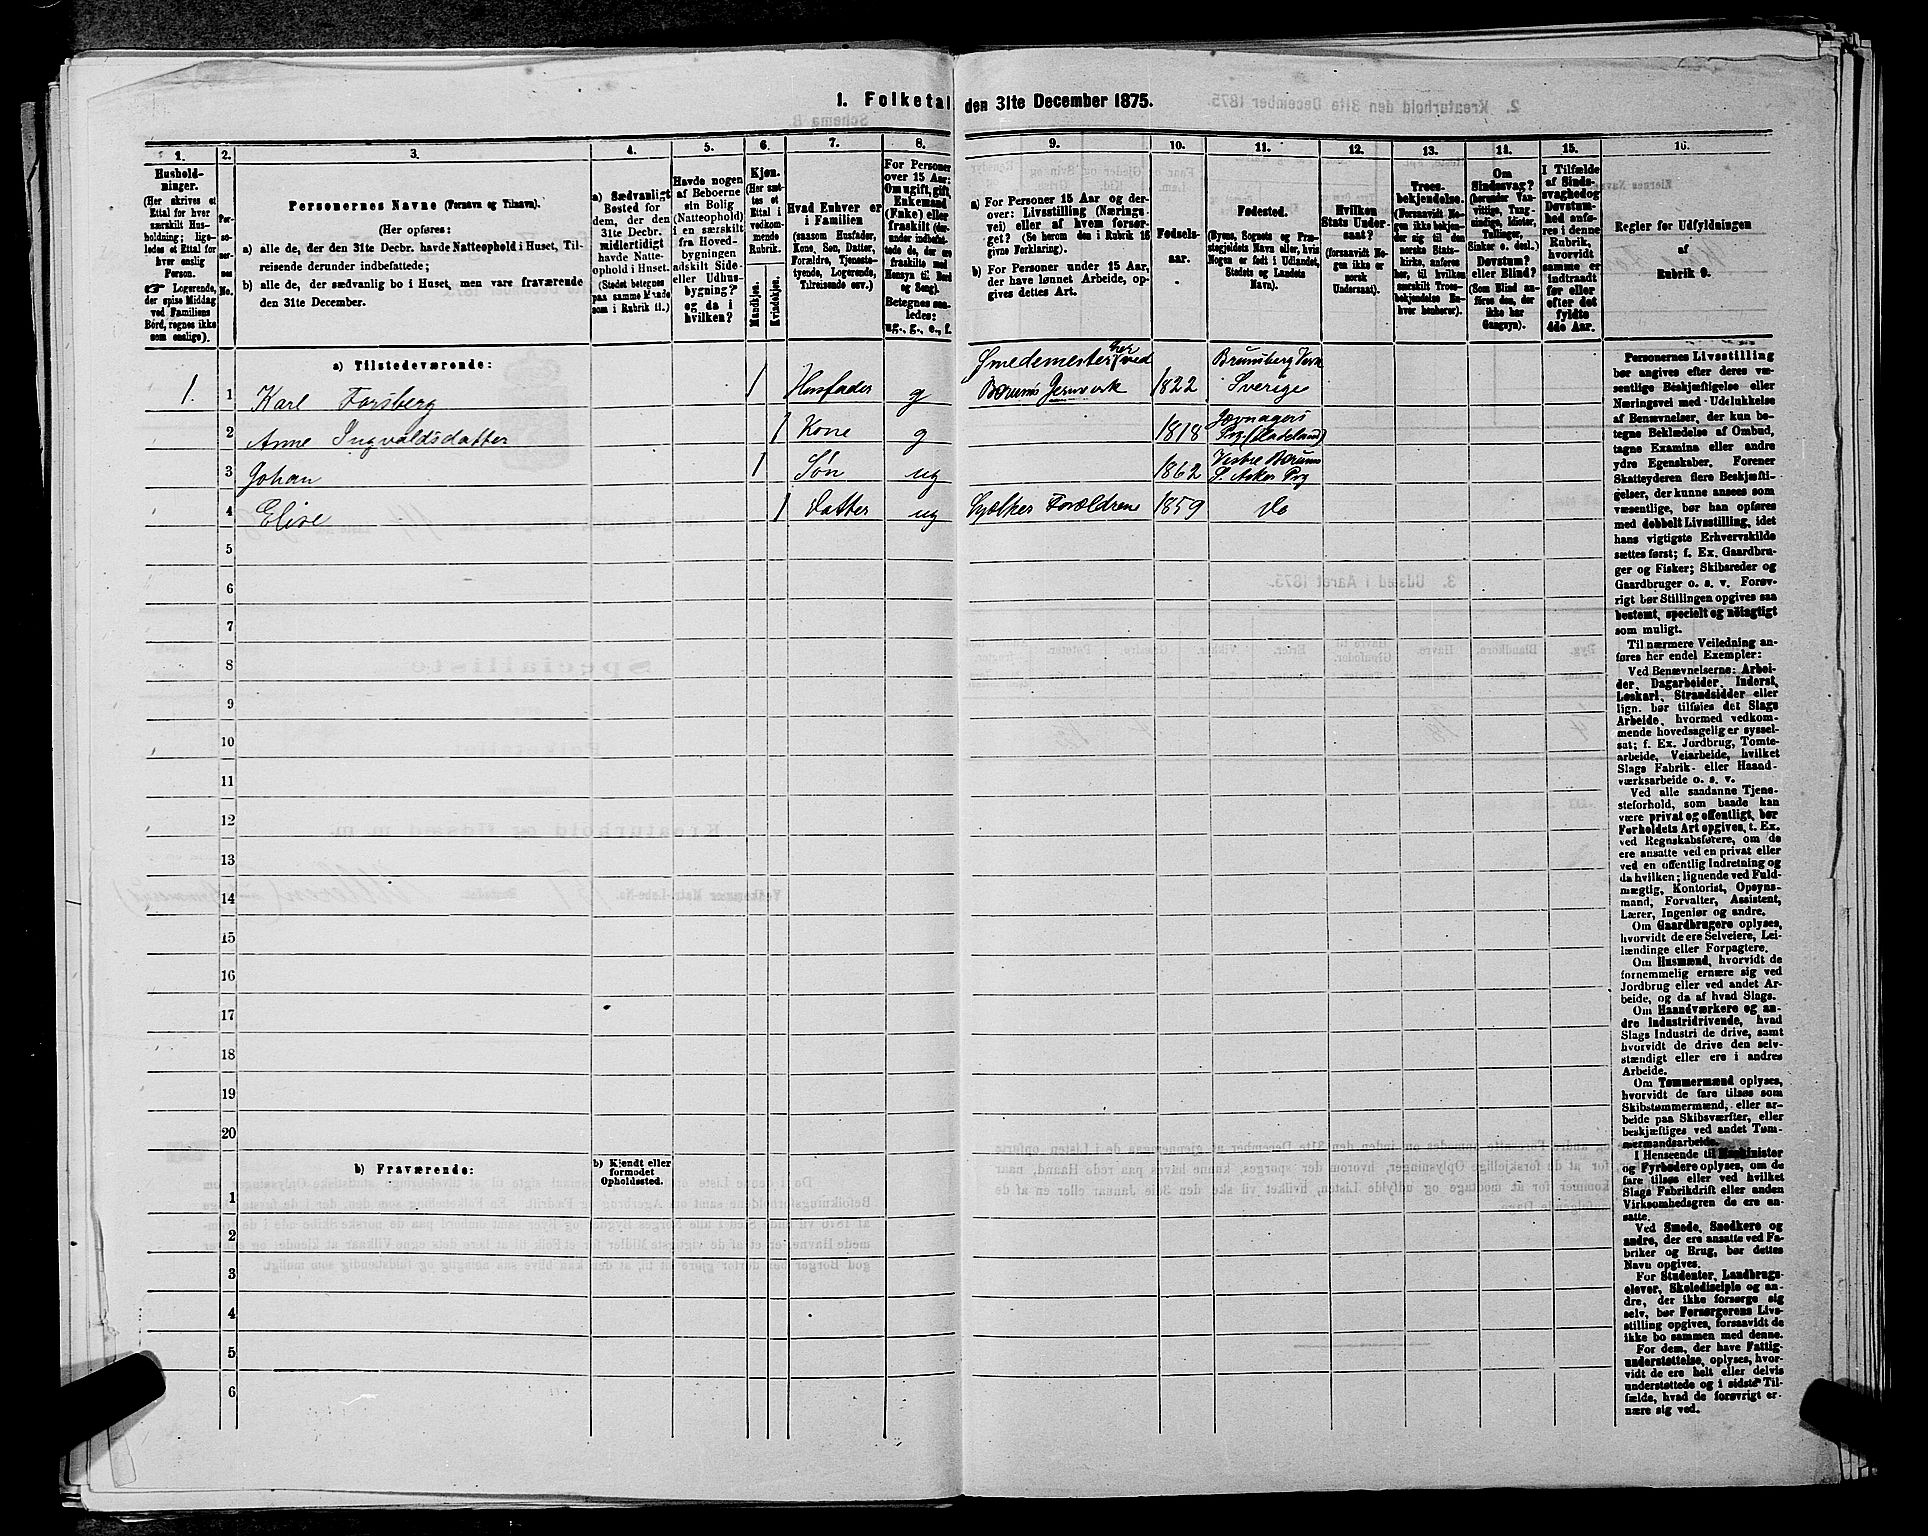 1. Folketal den 31te December 1875.
1.
Hushold-
ninger.
(Her skrives et
Ettal for hver
særskilt Hus-
holdning; lige-
ledes et Ettal for
hver enslig
Person.
☞ Logerende,
der spise Middag
ved Familiens
Bord, regnes ikke
som enslige).
2.
Per-
so-
ner-
nes
No.
3.
Personernes Navne (Fornavn og Tilnavn).
(Her opføres:
a) alle de, der den 31te Decbr. havde Natteophold i Huset, Til-
reisende derunder indbefattede;
b) alle de, der sædvanlig bo i Huset, men vare fraværende
den 31te December.
4.
a) Sædvanligt
Bosted for
dem, der den
31te Decbr.
midlertidigt
havde Natte-
ophold i Huset.
(Stedet betegnes
paa samme Maade
som i Rubrik 11.)
5.
Havde nogen
af Beboerne
sin Bolig
(Natteophold)
i en særskilt
fra Hoved-
bygningen
adskilt Side-
eller Udhus-
bygning?
og da i
hvilken?
6.
Kjøn.
(Her sæt-
tes et
Ettal i
vedkom-
mende
Rubrik.
Mandkjøn.
Kvindekjøn.
7.
Hvad Enhver er
i Familien
(saasom Husfader,
Kone, Søn, Datter,
Forældre, Tjeneste-
tyende, Logerende,
Tilreisende osv.)
8.
For Personer
over 15 Aar:
Om ugift, gift,
Enkemand
(Enke) eller
fraskilt (der-
under indbefat-
tede de, der ere
fraskilte med
Hensyn til Bord
og Seng).
Betegnes saa-
ledes:
ug., g., e., f.
9.
a) For Personer 15 Aar og der-
over: Livsstilling (Nærings-
vei) eller af hvem forsør-
get? (Se herom den i Rubrik 16
givne Forklaring).
b) For Personer under 15 Aar,
der have lønnet Arbeide, op-
gives dettes Art.
10.
Fødsels-
aar.
11.
Fødested.
(Byens, Sognets og Præ-
stegjeldets Navn eller, hvis
Nogen er født i Udlandet,
Stedets og Landets
Navn).
12.
Hvilken
Stats Under-
saat?
(forsaavidt No-
gen ikke er
norsk
Undersaat).
13.
Troes-
bekjendelse.
(Forsaavidt No-
gen ikke bekjen-
der sig til den
norske Stats-
kirke, anføres
her, til hvilken
særskilt Troes-
bekjendelse En-
hver henhører).
14.
Om
Sindssvag?
(herunder Van-
vittige, Tung-
sindige, Idioter,
Tullinger,
Sinker o. desl.).
Døvstum?
eller Blind?
(Som Blind an-
føres den, der
ikke har
Gangsyn).
15.
I Tilfælde
af Sinds-
svaghed og
Døvstum-
hed anfø-
res i denne
Rubrik,
hvorvidt
samme er
indtraadt
før eller
efter det
fyldte
4de Aar.
16.
Regler for Udfyldningen
af
Rubrik 9.
a) Tilstedeværende:
1. 1 Karl Forsberg 1 Husfader g Smedemester her ved Bærums Jernverk 1822 Brunsberg Verk Sverige
2 Anne Ingvaldsdatter 1 Kone g 1818 Jævnagers Prg (Hadeland)
3 Johan 1 Søn ug 1862 Vestre Bærums S. Asker Prg
4 Elise 1 Datter ug hjælper Forældrene 1859 do
5
6
7
8
9
10
11
12
13
14
15
16
17
18
19
20
b) Fraværende:
b) Kjendt eller
formodet
Opholdssted.
1
2
3
4
5
6
Personernes Livsstilling
bør angives efter deres væ-
sentlige Beskjæftigelse eller
Næringsvei med Udelukkelse
af Benævnelser, der kun be-
tegne Beklædelse af Ombud,
tagne Examina eller andre
ydre Egenskaber. Forener
Skatteyderen flere Beskjæfti-
gelser, der kunne ansees som
væsentlige, bør han opføres
med dobbelt Livsstilling, idet
hans vigtigste Erhvervskilde
sættes først; f. Ex. Gaardbru-
ger og Fisker; Skibsreder og
Gaardbruger o. s. v. Forøv-
rigt bør Stillingen opgives saa
bestemt, specielt og nøiagtigt
som muligt.
Til nærmere Veiledning an-
føres her endel Exempler:
Ved Benævnelserne: Arbei-
der, Dagarbeider, Inderst,
Løskarl, Strandsidder eller
lign. bør tilføies det Slags
Arbeide, hvormed vedkom-
mende hovedsagelig er syssel-
sat; f. Ex. Jordbrug, Tomte-
arbeide, Veiarbeide, hvilket
Slags Fabrik- eller Haand-
værksarbeide o. s. v.
Ved alle saadanne Tjene-
steforhold, som baade kan
være privat og offentligt, bør
Forholdets Art opgives, t. Ex.
ved Regnskabsførere, om de
ere ansatte ved en privat eller
ved en offentlig Indretning og
da hvilken; lignende ved Fuld-
mægtig, Kontorist, Opsyns-
mand, Forvalter, Assistent,
Lærer, Ingeniør og andre.
Om Gaardbrugere oplyses,
hvorvidt de ere Selveiere, Lei-
lændinge eller Forpagtere.
Om Husmænd, hvorvidt de
fornemmelig ernære sig ved
Jordbrug eller ved andet Ar-
beide, og da af hvad Slags.
Om Haandværkere og an-
dre Industridrivende, hvad
Slags Industri de drive, samt
hvorvidt de drive den selv-
stændigt eller ere i andres
Arbeide.
Om Tømmermænd oplyses,
hvorvidt de fare tilsøs som
Skibstømmermænd, eller ar-
beide paa Skibsværfter, eller
beskjæftiges ved andet Tøm-
mermandsarbeide.
I Henseende til Maskinister
og Fyrbødere oplyses, om de
fare tilsøs eller ved hvilket
Slags Fabrikdrift eller anden
Virksomhedsgren de ere an-
satte.
Ved Smede, Snedkere og
andre, der ere ansatte ved Fa-
briker og Brug, bør dettes
Navn opgives.
For Studenter, Landbrugs-
elever, Skoledisciple og an-
dre, der ikke forsørge sig
selv, bør Forsørgerens Livs-
stilling opgives, forsaavidt de
ikke bo sammen med denne.
For dem, der have Fattig-
understøttelse, oplyses, hvor-
vidt de ere helt eller delvis
understøttede og i sidste Til-
fælde, hvad de forøvrigt er-
nære sig ved.